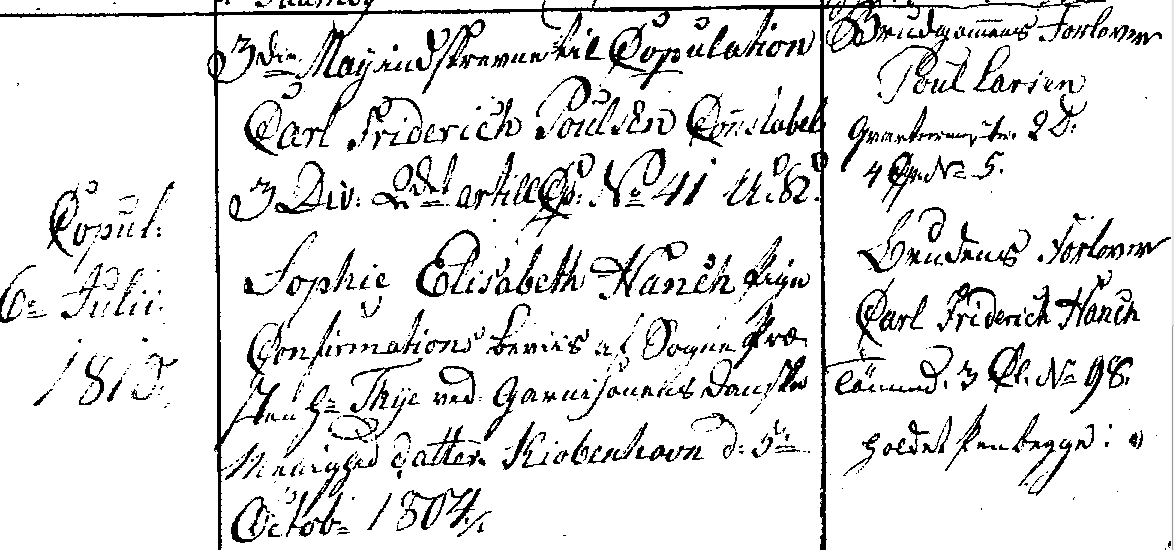 Copul:
6= Julii
1810.
3die May indskrevne til Copulation
Carl Friderich Poulsen Constabel
3 Div: 2det artill Cp. No 41 U:S:
Sophie Elisabeth Hanch Pige
Confirmations beviis af Sogne Præ-
sten Hr Thye ved Garnisonens Danske
Menighed datter. Kiøbenhavn d: 5te
Octob= 1804/.
Brudgommens Forlover
Poul Larsen
Qvarteermestr. 2 D:
4 Cp. No 5.
Brudens Forlover
Carl Friderich Hanch
Tømmd. 3 Cp. No 98.
begge: